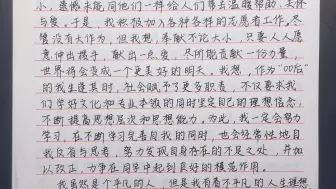 小,遗憾未能同他们一样给人们带去温暖帮助,关怀
与爱。于是,我积极加入各种各样的志愿者工作。尽
管没有大作为,但我想,奉献不论大小,只要人人愿
意伸出援手,献出一点爱,尽所能贡献一份力量,
世界将会变成一个更美好的明天。我想,作为“00后”
的我生逢其时,社会赋予了更多职责,不仅要求我
们学好文化和专业本领的同时坚定自己的理想信念,
不断提高思想层次和思想能力。为此,我一定会努力
学习,在不断学习完善自我的同时,也会经常性地自
我反省与思考,努力发现自身存在的不足之处,并加
以改正,力争在同学中起到良好的模范作用。
我虽然是个平凡的人,但是我有着不平凡的人生理想